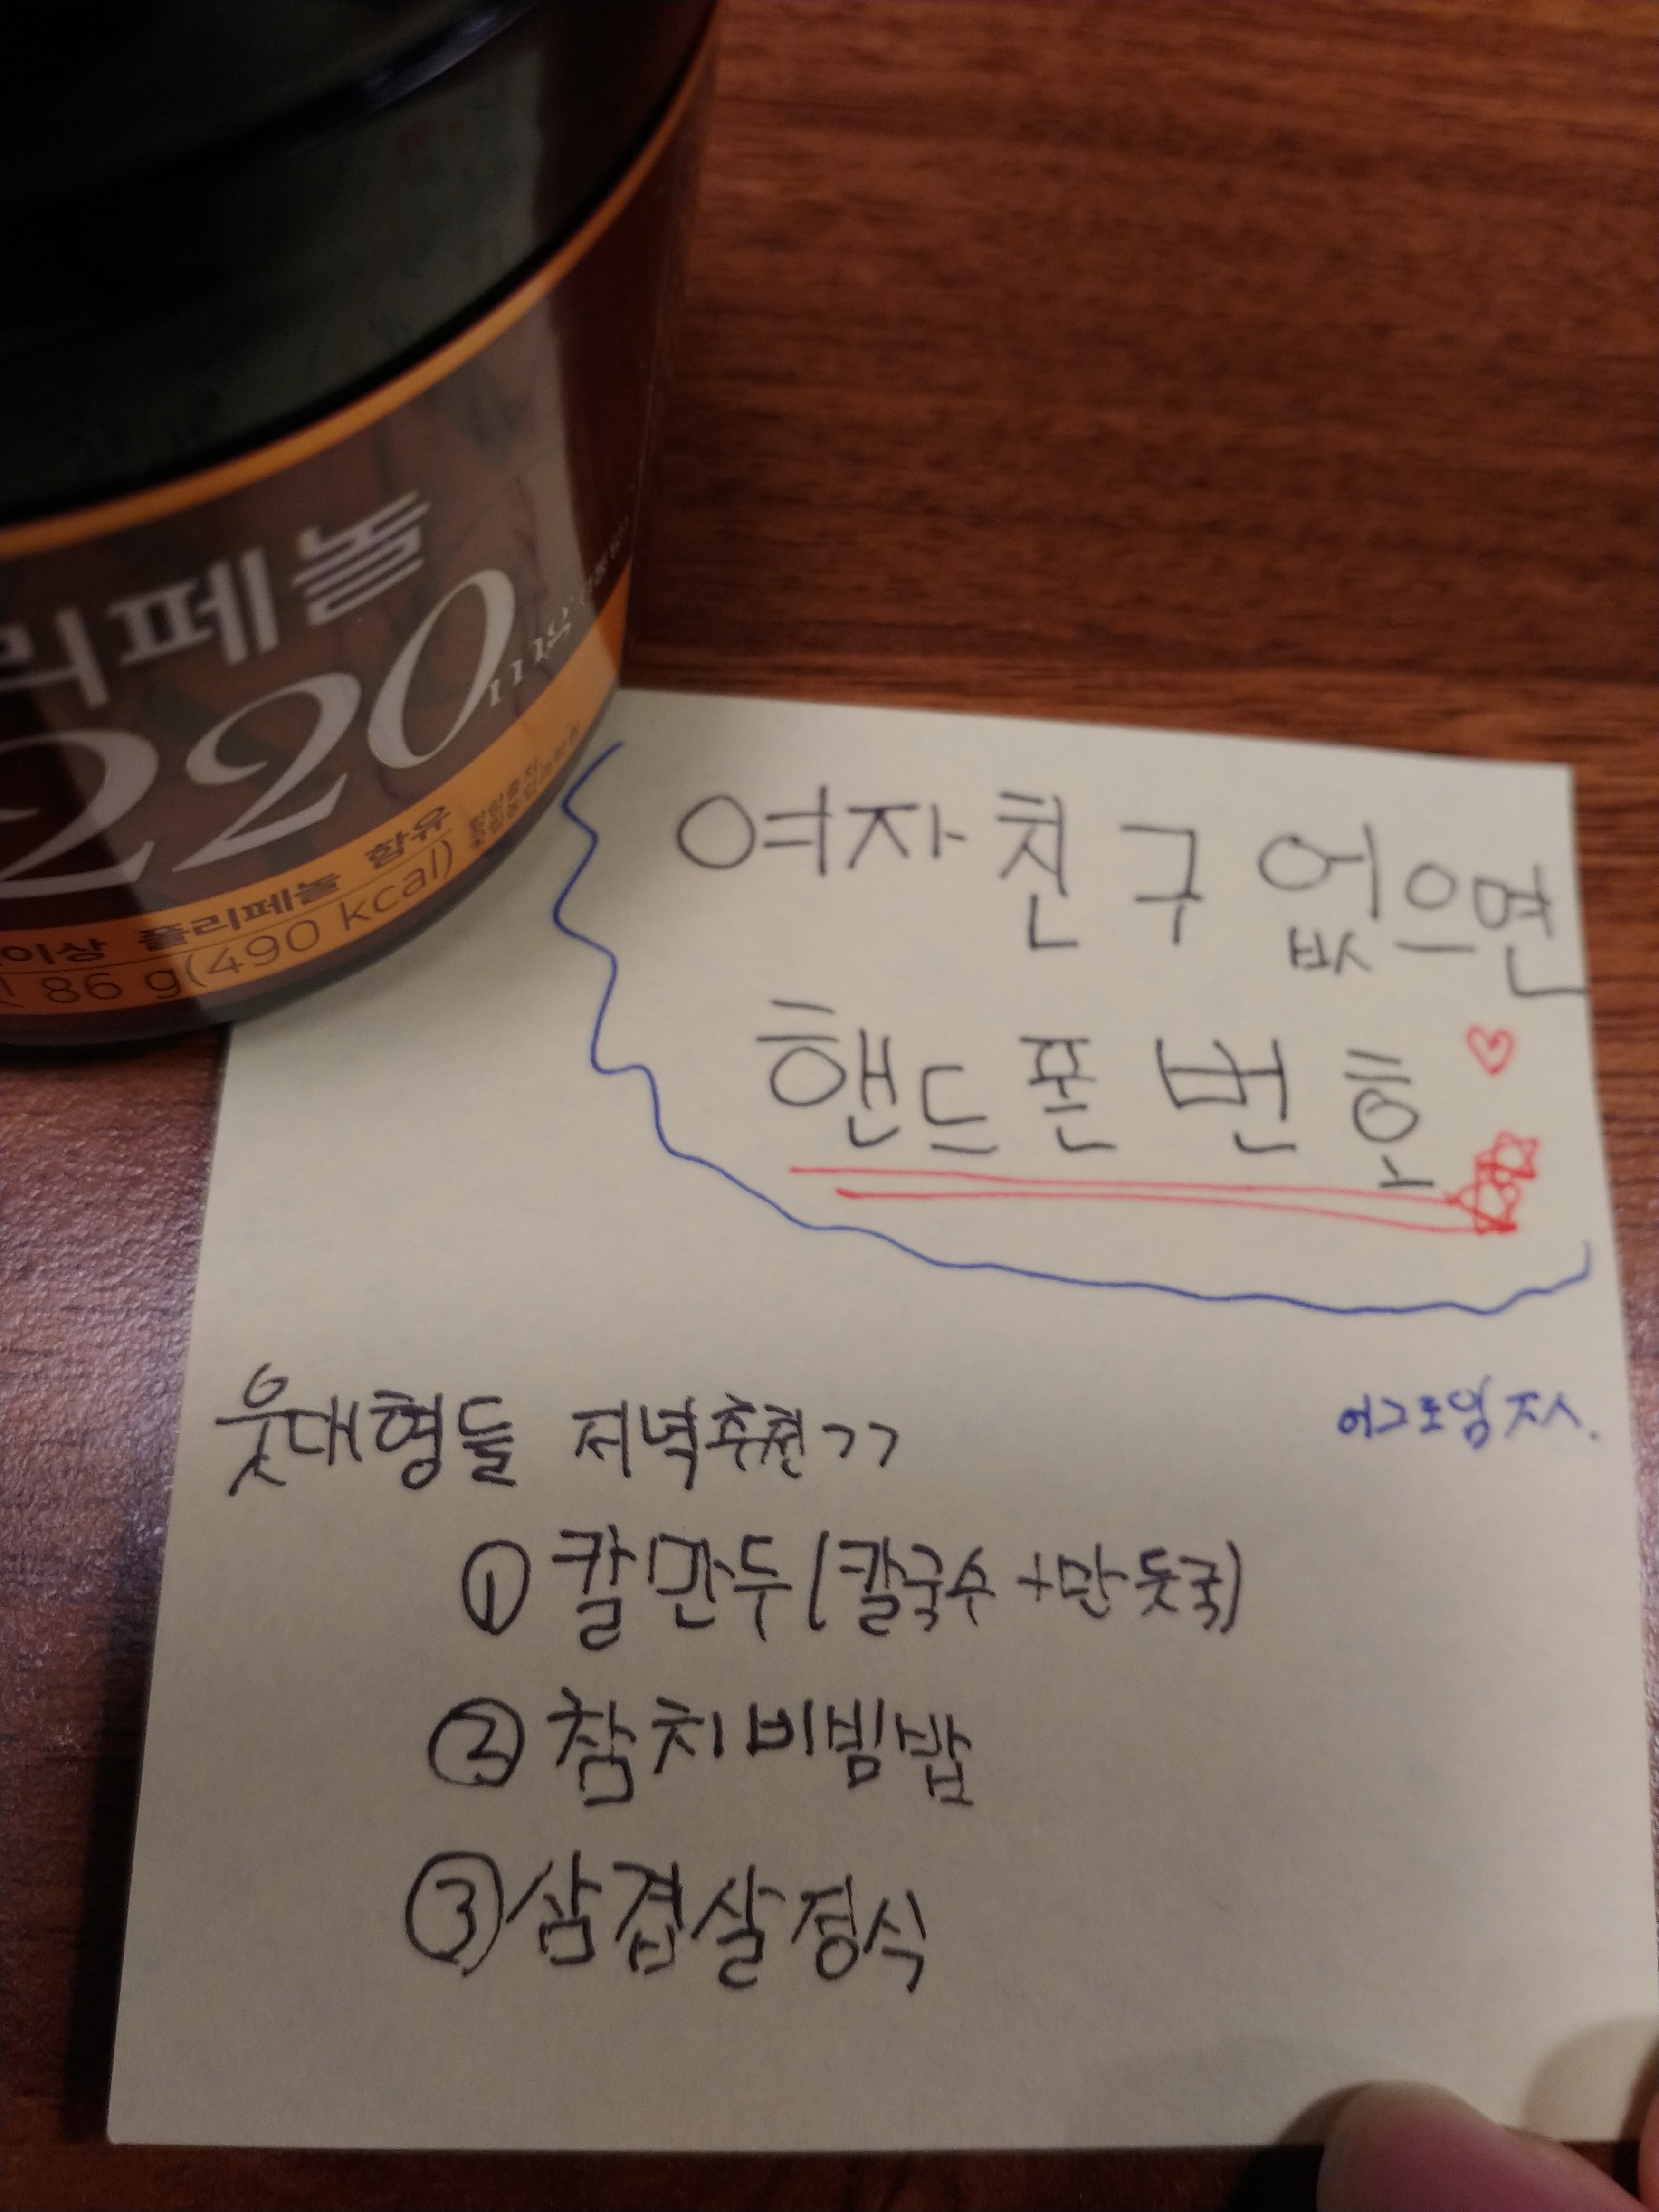 리페놀
220mg
이상 폴리페놀 함유
86 g(490 kcal)
여자친구 없으면
핸드폰 번호
어그로임 ㅈㅅ.
웃대형들 저녁추천ㄱㄱ
① 칼만두(칼국수+만둣국)
② 참치비빔밥
③ 삼겹살정식